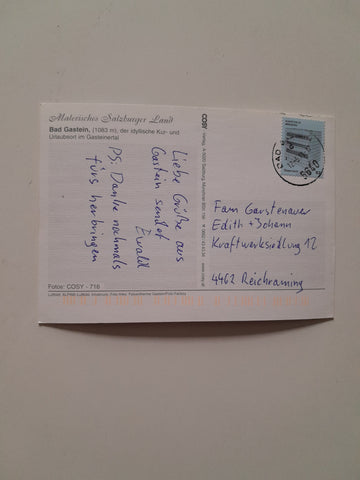 Malerisches Salzburger Land
Bad Gastein, (1083 m), der idyllische Kur- und
Urlaubsort im Gasteinertal
Liebe Grüße aus
Gastein sendet
Ewald
PS. Danke nochmals
fürs herbringen
Fotos: COSY - 716
COSY
Fam Garstenauer
Edith + Johann
Kraftwerksiedlung 12
4462 Reichraming